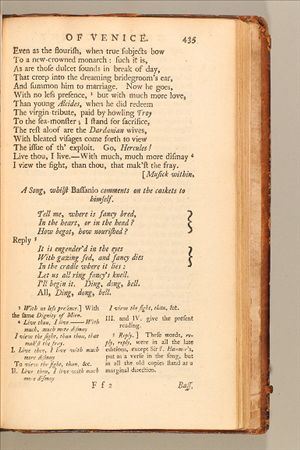 OF VENICE. 435
Even as the flourish, when true subjects bow
To a new-crowned monarch: such it is,
As are those dulcet sounds in break of day,
That creep into the dreaming bridegroom's ear,
And summon him to marriage. Now he goes,
With no less presence, ³ but with much more love,
Than young Alcides, when he did redeem
The virgin tribute, paid by howling Troy
To the sea-monster; I stand for sacrifice,
The rest aloof are the Dardanian wives,
With bleated visages come forth to view
The issue of th' exploit. Go, Hercules!
Live thou, I live.—With much, much more dismay ⁴
I view the fight, than thou, that mak'st the fray.
[Musick within.
A Song, whilst Bassanio comments on the caskets to
himself.
Tell me, where is fancy bred,
In the heart, or in the head?
How begot, how nourished?
Reply ⁵
It is engender'd in the eyes
With gazing fed, and fancy dies
In the cradle where it lies:
Let us all ring fancy's knell.
I'll begin it. Ding, dong, bell.
All, Ding, dong, bell.
³ With no less presence.] With
the same Dignity of Mien.
⁴ Live thou, I live.——With
much, much more dismay
I view the fight, than thou, that
mak'st the fray.
I. Live thou, I live with much
more dismay
To view the fight, than, &c.
II. Live thou, I live with much
more dismay
I view the fight, than, &c.
III. and IV. give the present
reading.
⁵ Reply.] These words, re-
ply, reply, were in all the late
editions, except Sir T. Hanmer's,
put as a verse in the song, but
in all the old copies stand as a
marginal direction.
F f 2 Bass.